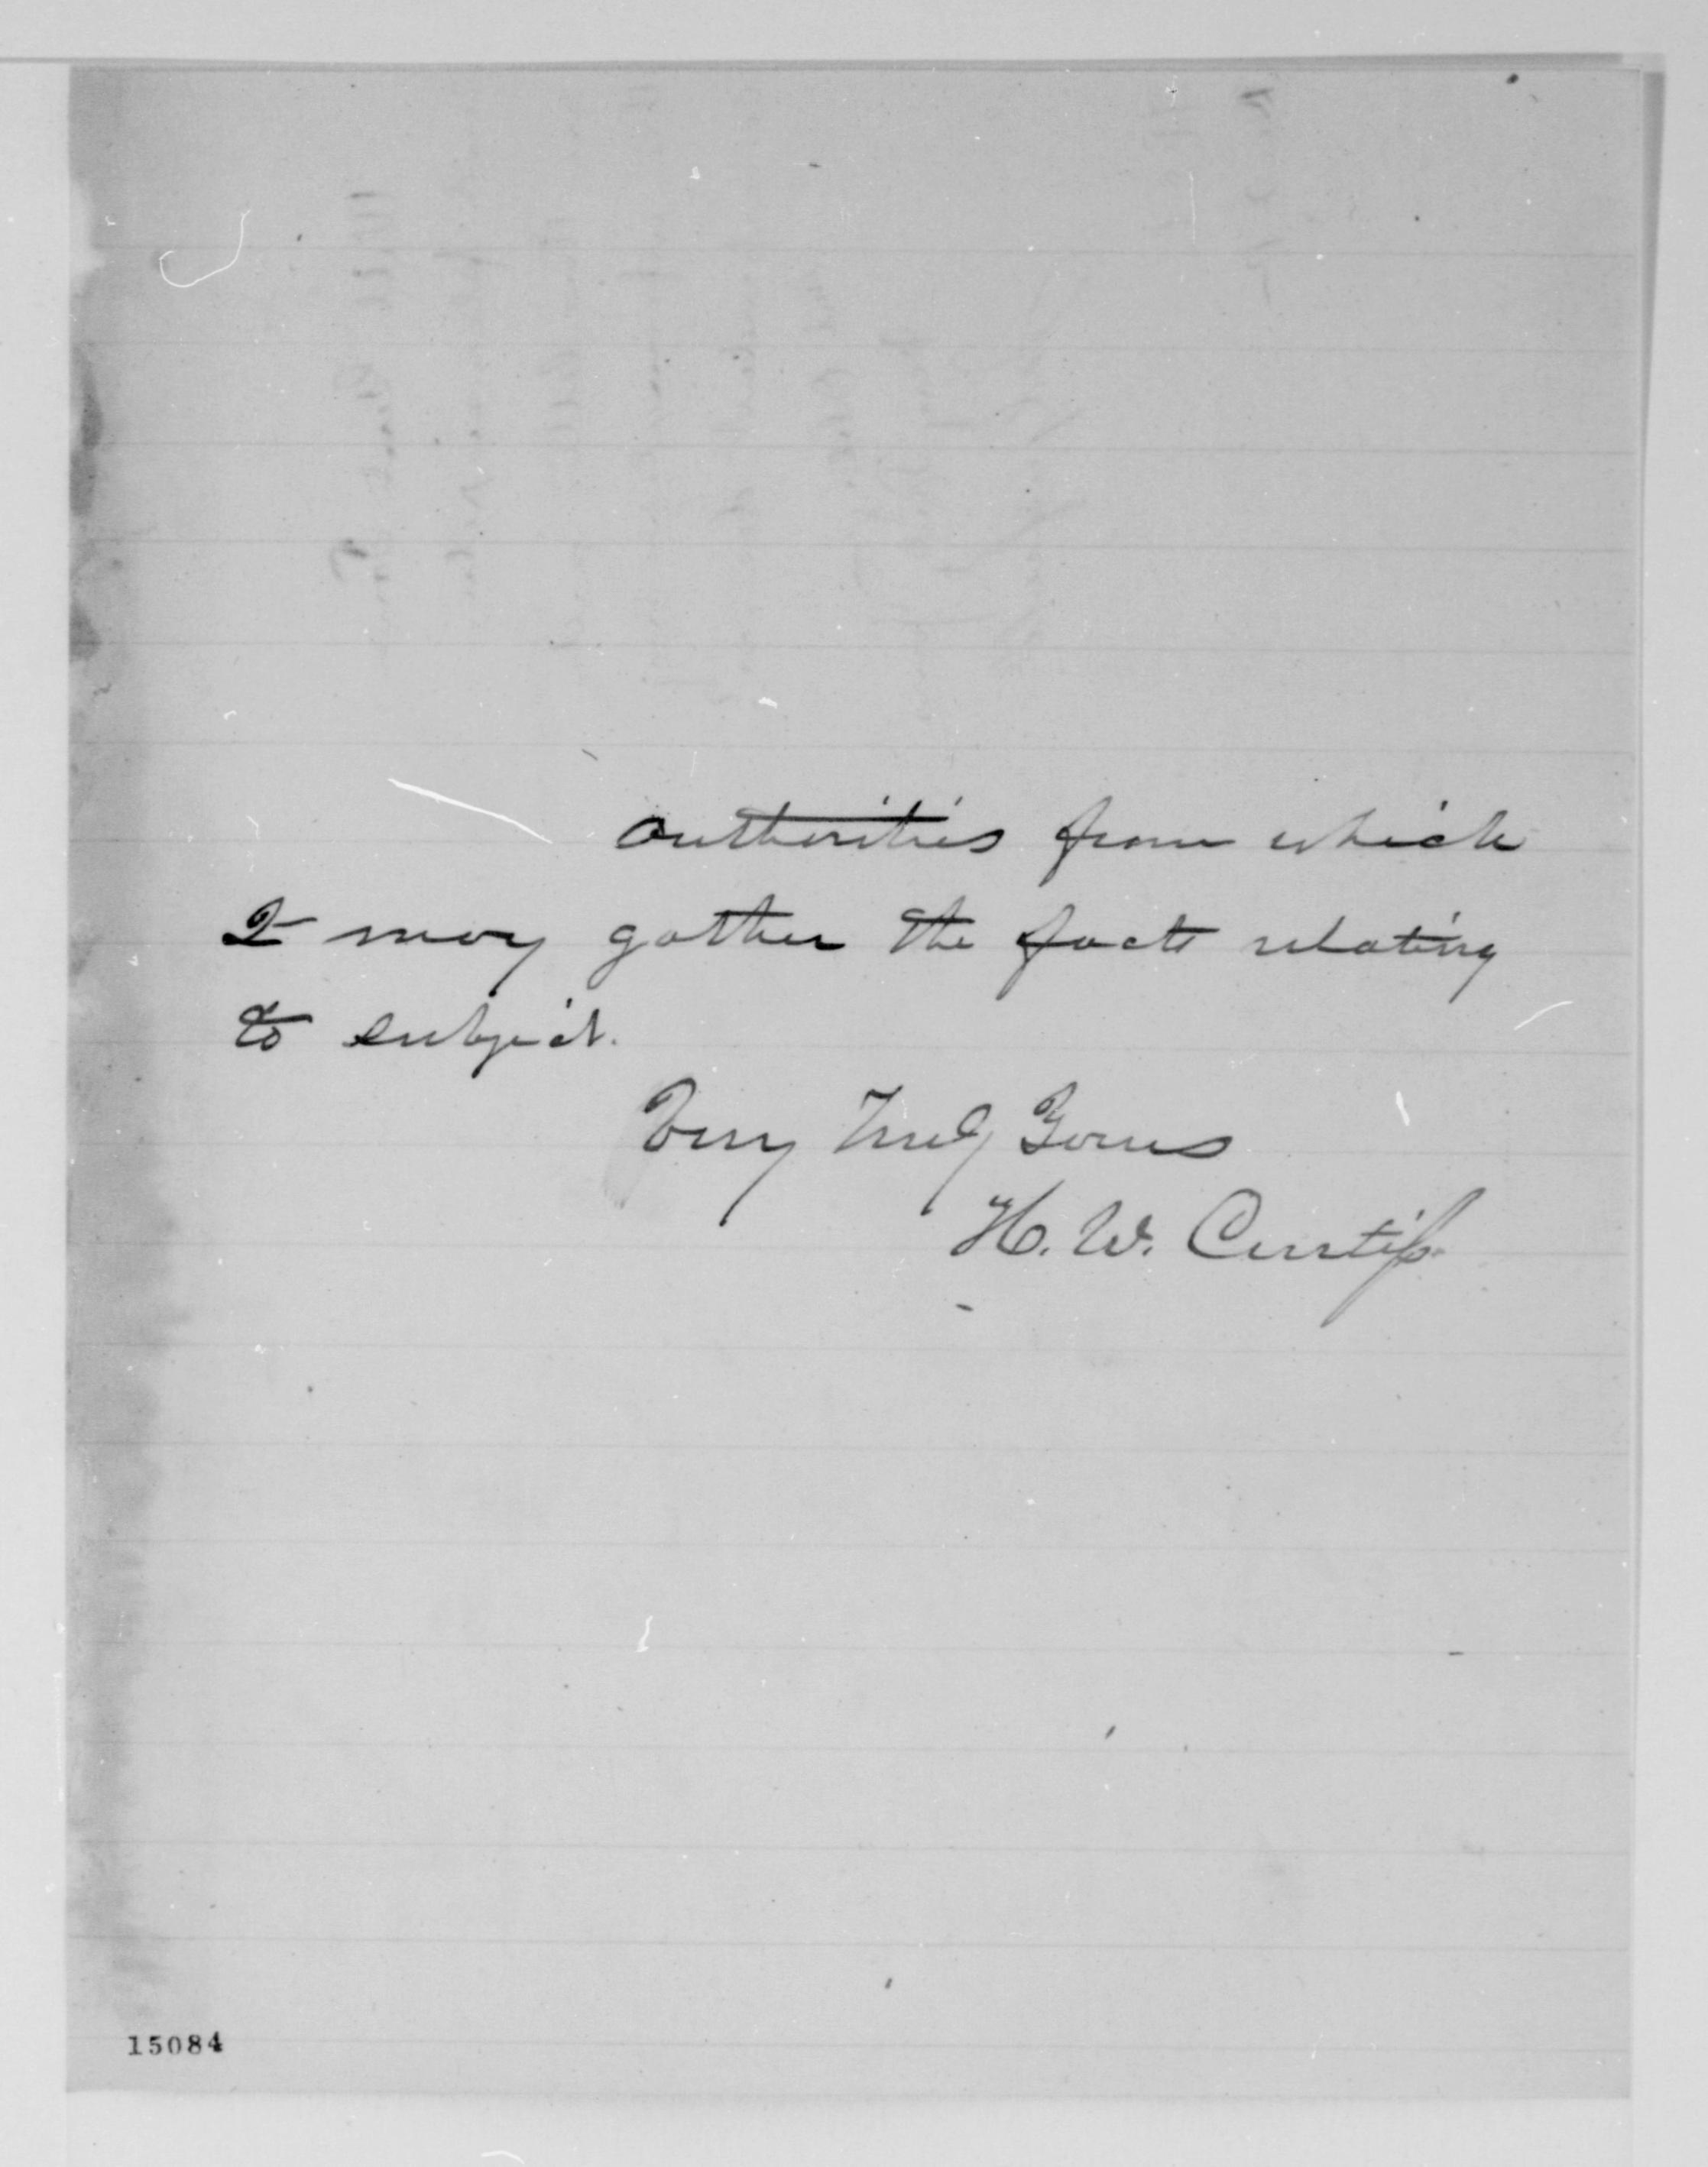 authorities from which
I may gather the facts relating
to subject.
Very Truly Yours
H. W. Curtiss
15084